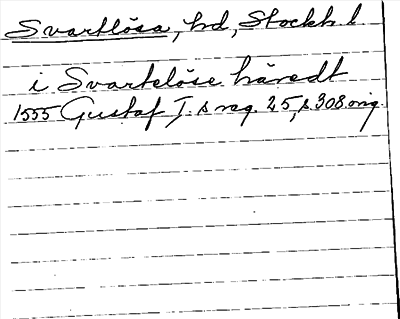 Svartlösa, hd, Stockh. l
i Svartelöse häredt
1555 Gustaf I:s reg. 25, s. 308 orig.